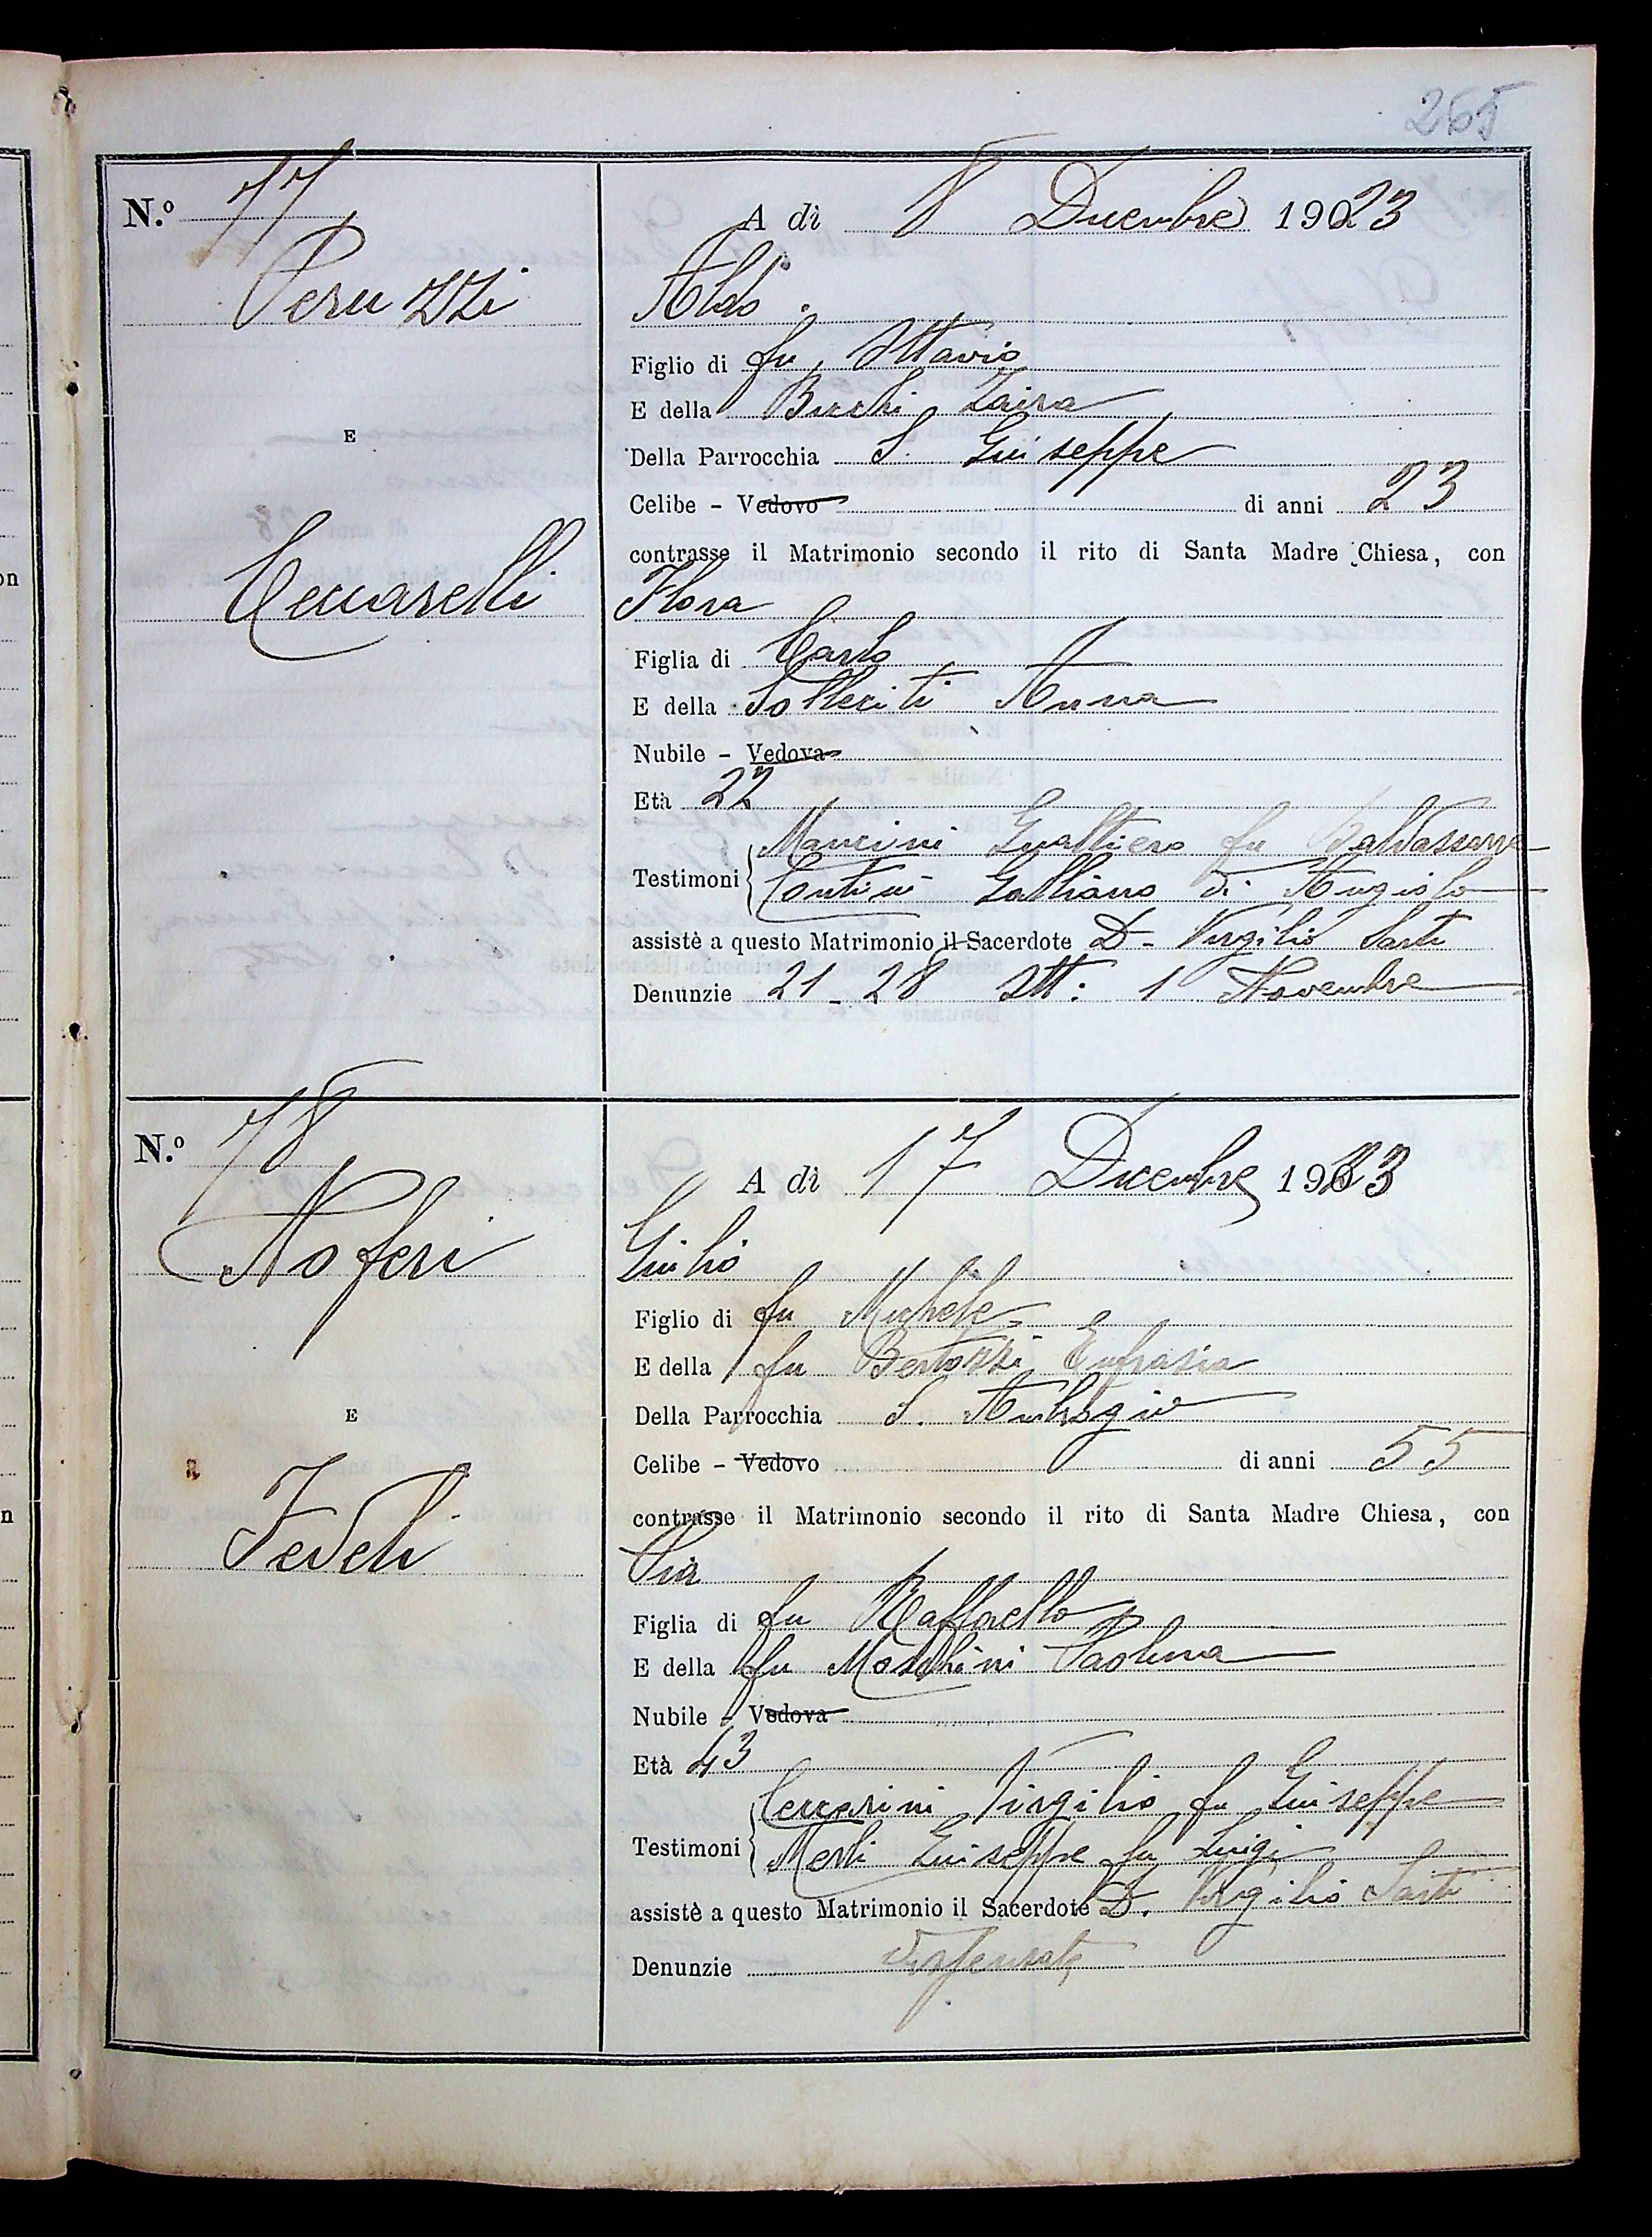 265
N.º 77
A dì 8 Dicembre 1923
Peruzzi
Aldo
Figlio di fu Ottavio
E della Bicchi Zaira
E
Della Parrocchia S. Giuseppe
Celibe - Vedovo di anni 23
contrasse il Matrimonio secondo il rito di Santa Madre Chiesa, con
Ceccarelli
Flora
Figlia di Carlo
E della Solleciti Anna
Nubile - Vedova
Età 22
Testimoni
Mancini Gualtiero fu Baldassarre
Contini Galliano di Angiolo
assistè a questo Matrimonio il Sacerdote D. Virgilio Sarti
Denunzie 21 - 28 Ott: 1 Novembre
N.º 78
A dì 17 Dicembre 1923
Noferi
Giulio
Figlio di fu Michele
E della fu Bertozzi Eufrasia
E
Della Parrocchia S. Ambrogio
Celibe - Vedovo di anni 55
contrasse il Matrimonio secondo il rito di Santa Madre Chiesa, con
Fedeli
Pia
Figlia di fu Raffaello
E della fu Moschini Paolina
Nubile - Vedova
Età 43
Testimoni
Ceccarini Virgilio fu Giuseppe
Merli Giuseppe fu Luigi
assistè a questo Matrimonio il Sacerdote D. Virgilio Sarti
Denunzie Dispensate